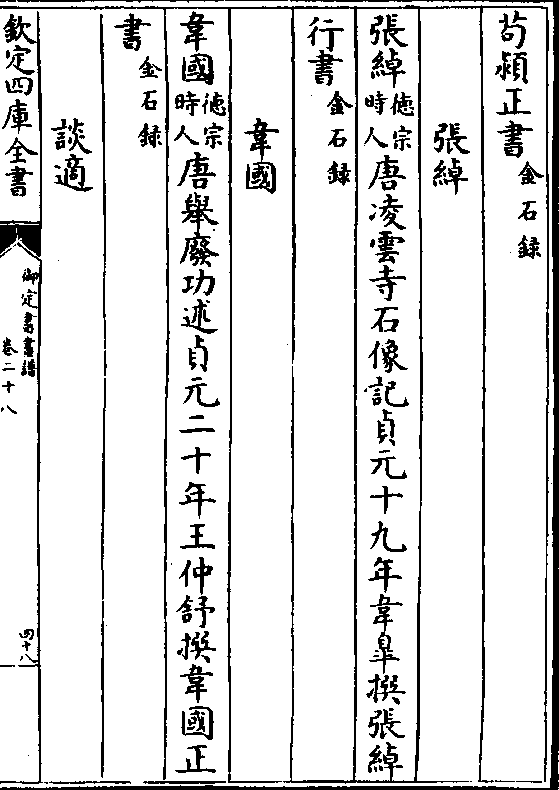 荀潁正書金石録
張綽
張綽徳宗時人唐凌雲寺石像記貞元十九年韋臯撰張綽
行書金石録
韋國
韋國徳宗時人唐舉廢功述貞元二十年王仲舒撰韋國正
書金石録
談適
欽定四庫全書
御定書畫譜
卷二十八
四十八